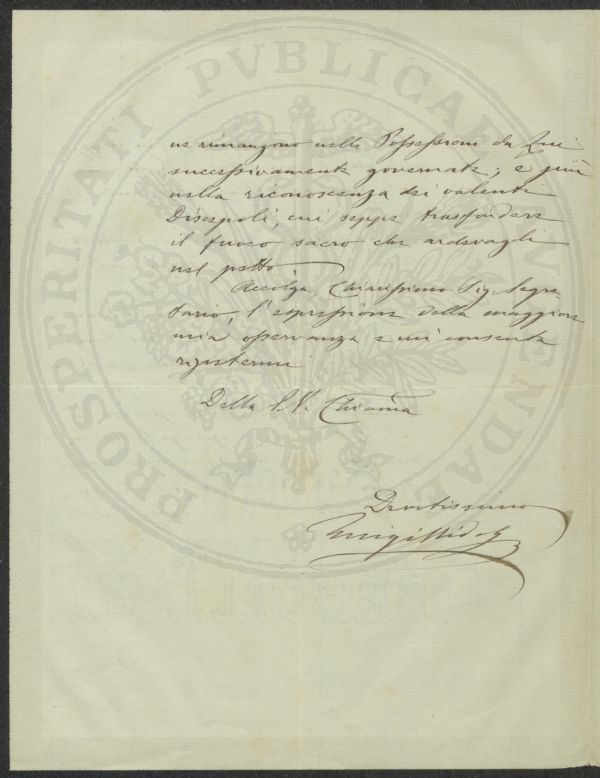 PROSPERITATI PVBLICAE AVGENDAE
ne rimangono nelle Possessioni da Lui
successivamente governate; e più
nella riconoscenza dei valenti
Discepoli, cui seppe trasfondere
il fuoco sacro che ardevagli
nel petto.
Accolga, Chiarissimo Sig. Segre-
tario, l'espressione della maggiore
mia osservanza e mi consenta
ripetermi
Della S. V. Chiarma
Devotissimo
Luigi